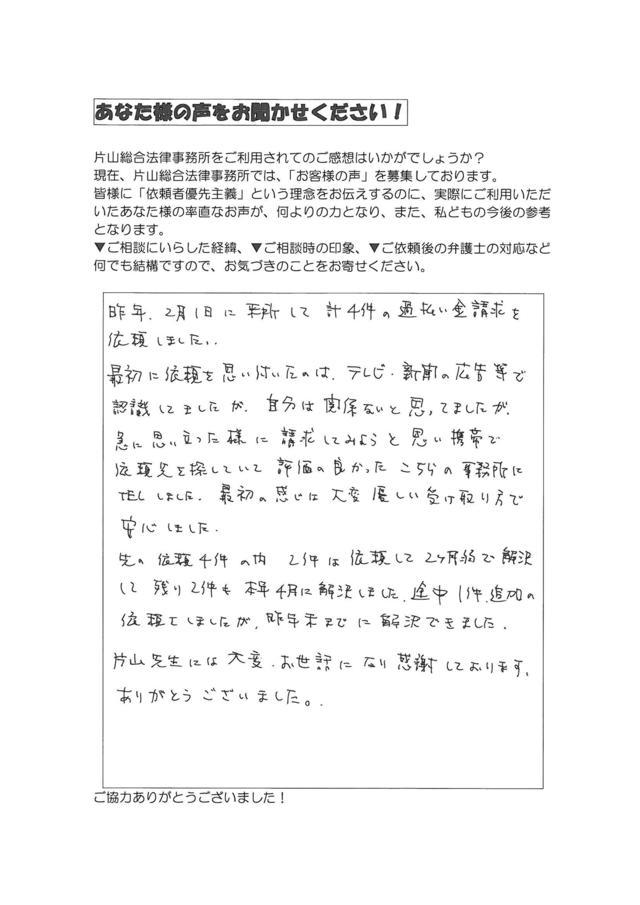 あなた様の声をお聞かせください！
片山総合法律事務所をご利用されてのご感想はいかがでしょうか？
現在、片山総合法律事務所では、「お客様の声」を募集しております。
皆様に「依頼者優先主義」という理念をお伝えするのに、実際にご利用いただ
いたあなた様の率直なお声が、何よりの力となり、また、私どもの今後の参考
となります。
▼ご相談にいらした経緯、▼ご相談時の印象、▼ご依頼後の弁護士の対応など
何でも結構ですので、お気づきのことをお寄せください。
昨年、2月1日に来所して計4件の過払い金請求を
依頼しました。
最初に依頼を思い付いたのは、テレビ・新聞の広告等で
認識してましたが、自分は関係ないと思ってましたが、
急に思い立った様に請求してみようと思い携帯で
依頼先を探していて評価の良かったこちらの事務所に
TELしました。最初の感じは大変優しい受け取り方で
安心しました。
先の依頼4件の内 2件は依頼して2ヶ月弱で解決
して残り2件も本年4月に解決しました。途中1件、追加の
依頼てしましたが、昨年末までに解決できました。
片山先生には大変お世話になり感謝しております。
ありがとうございました。
ご協力ありがとうございました！